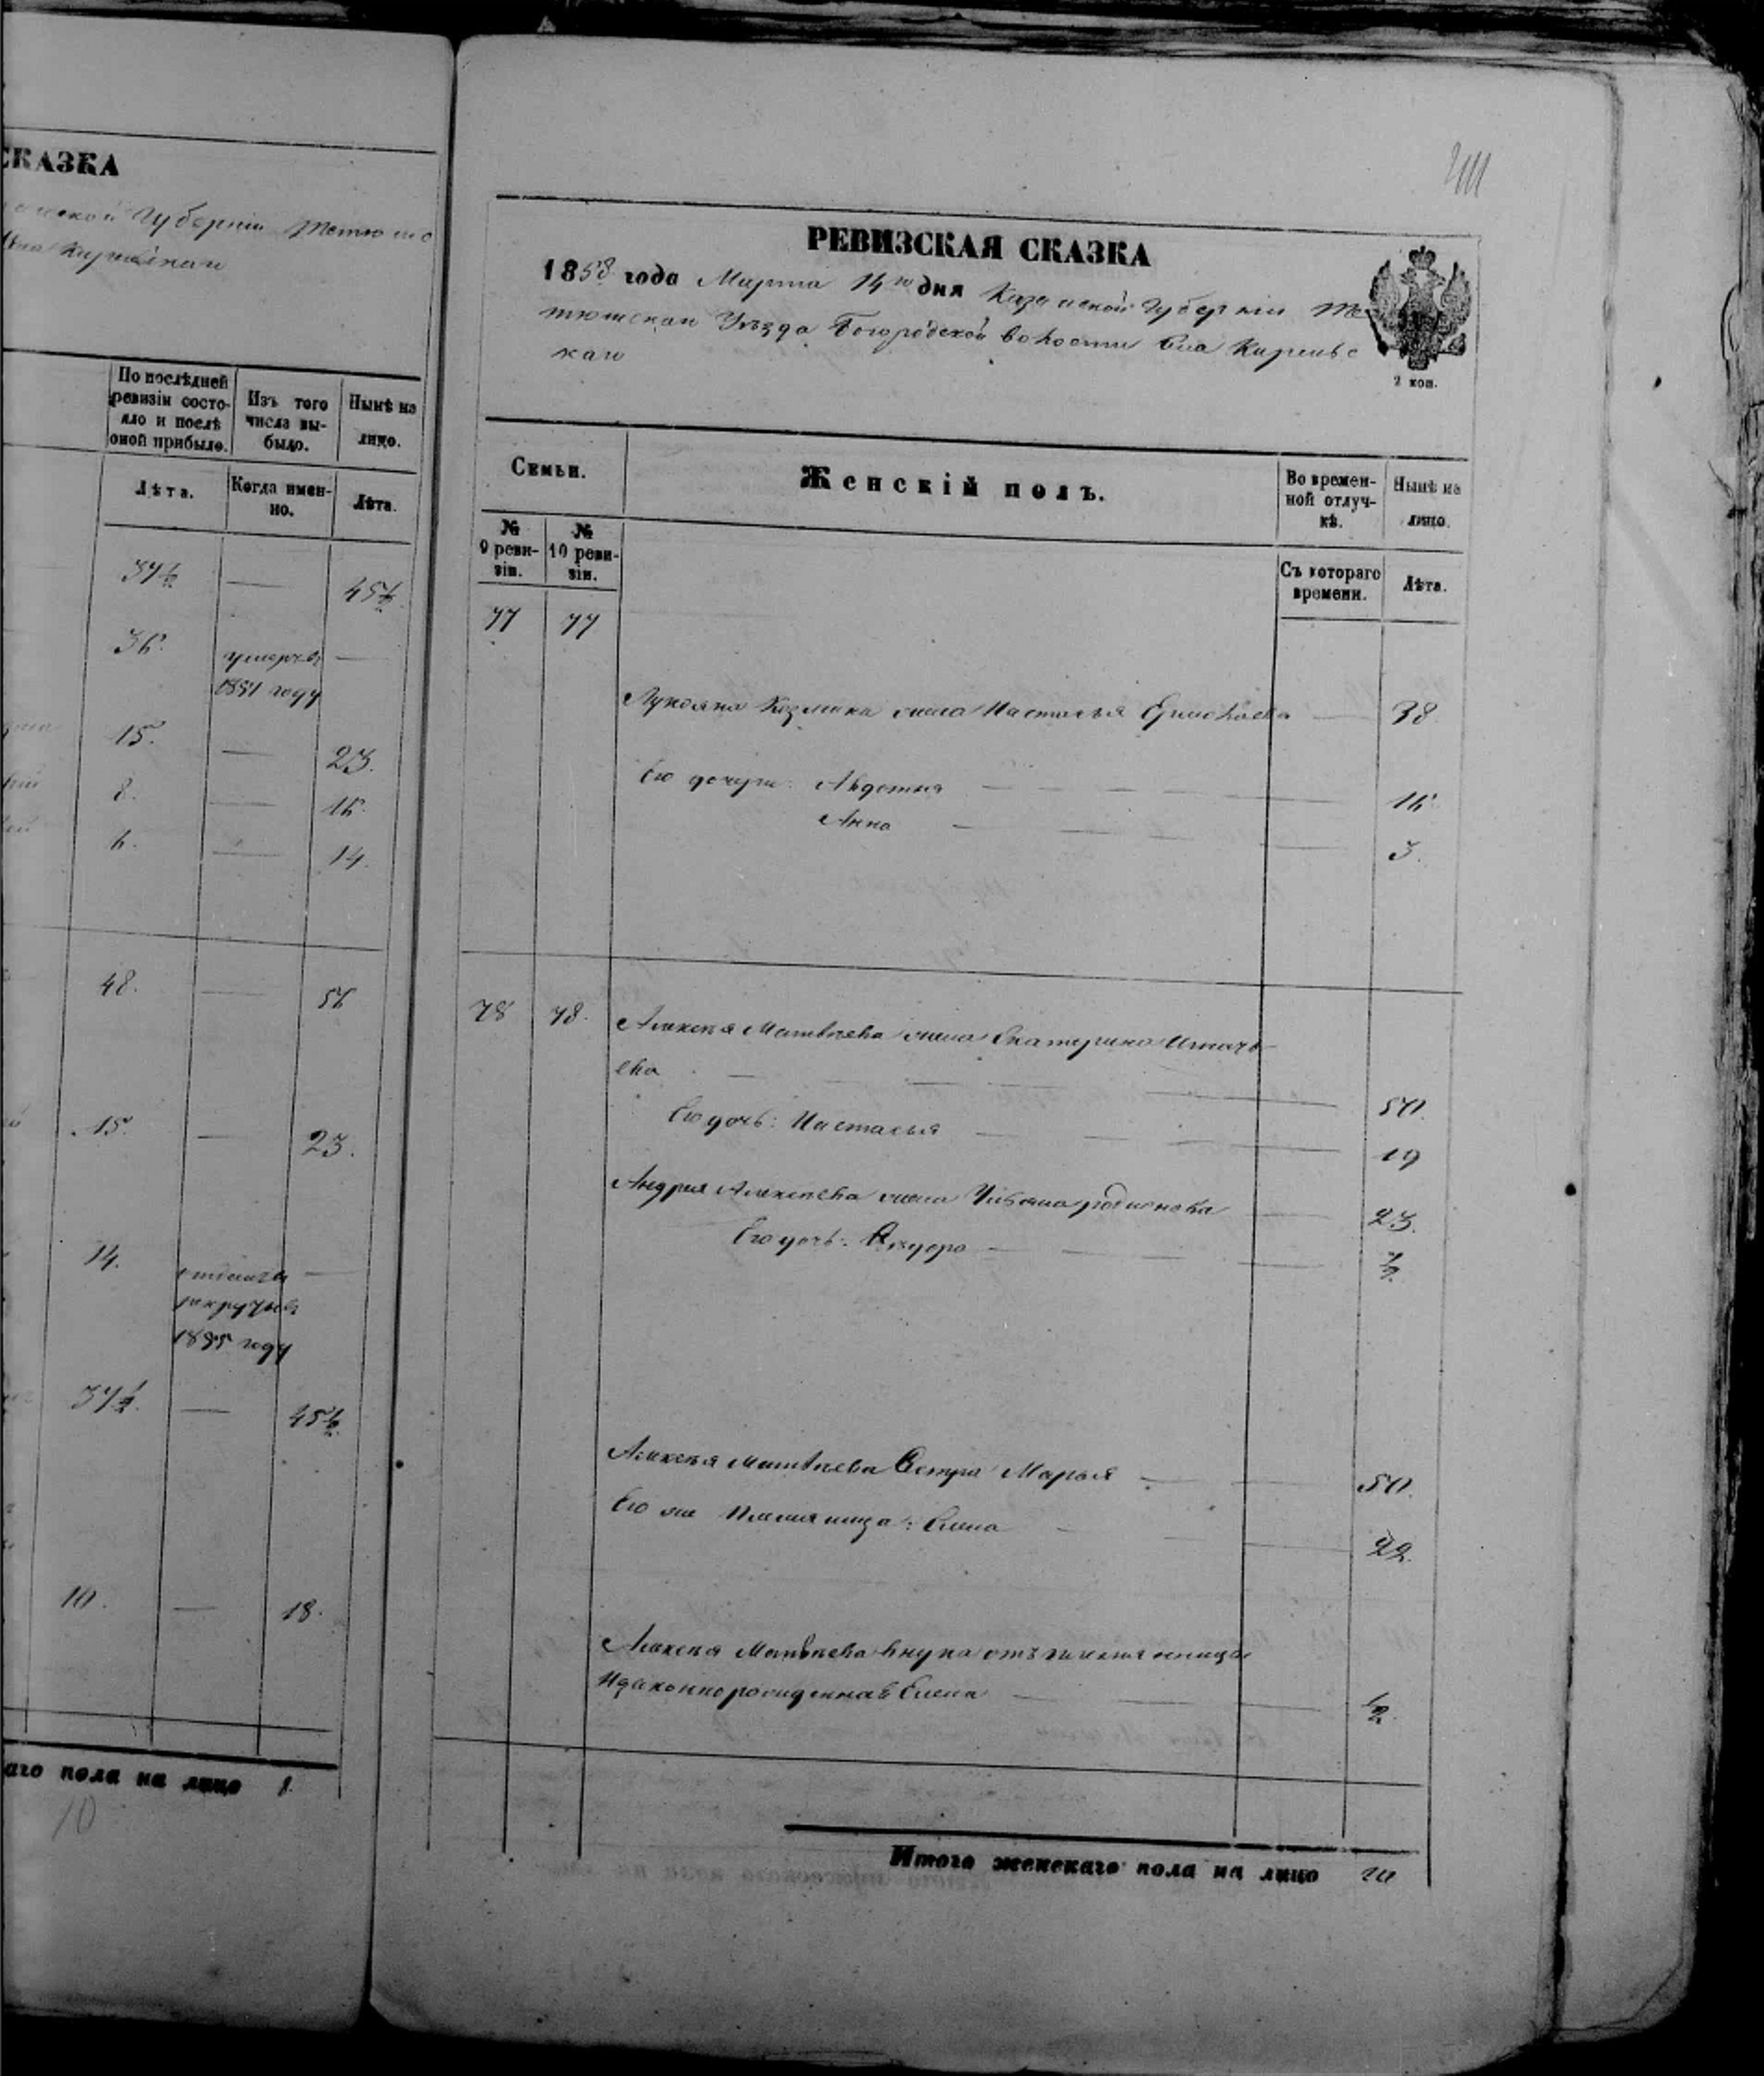 СКАЗКА
Губерніи Тетюшс
По послѣдней
ревизіи состо-
яло и послѣ
оной прибыло.
Изъ того
числа вы-
было.
Нынѣ на
лицо.
Лѣта.
Когда имен-
но.
Лѣта.
37½ — 45½
36. умеръ въ —
1851 году
15. — 23.
8. — 16.
6. — 14.
48. — 56
15. — 23.
14. —
1855 году
37½. — 45½
10. — 18.
аго пола на лицо 8.
10
РЕВИЗСКАЯ СКАЗКА
1858 года Марта 14го дня Казанской Губерніи Те
тюшскаго Уѣзда Богородской волости
каго
2 коп.
Семьи.
Женскій полъ.
Во времен-
ной отлуч-
кѣ.
Нынѣ на
лицо.
№
9 реви-
зіи.
№
10 реви-
зіи.
Съ котораго
времени.
Лѣта.
77 77
Лукояна Козмина жена Настасья Ермолаева — 38
Его дочери: Авдотья — 16
Анна — 3.
78 78. Алексѣя Матвѣева жена Екатерина Игнать
ева — 50.
Его дочь: Настасья — 19
Андрея Алексѣева жена Ульяна родионова — 23.
Его дочь: — ½
Алексѣя Матвѣева Сестра Марья — 50.
Его же Племянница: Елена — 22.
Алексѣя Матвѣева внука отъ племянницы
Незаконнорожденная Елена — ½.
Итого женскаго пола на лицо 10